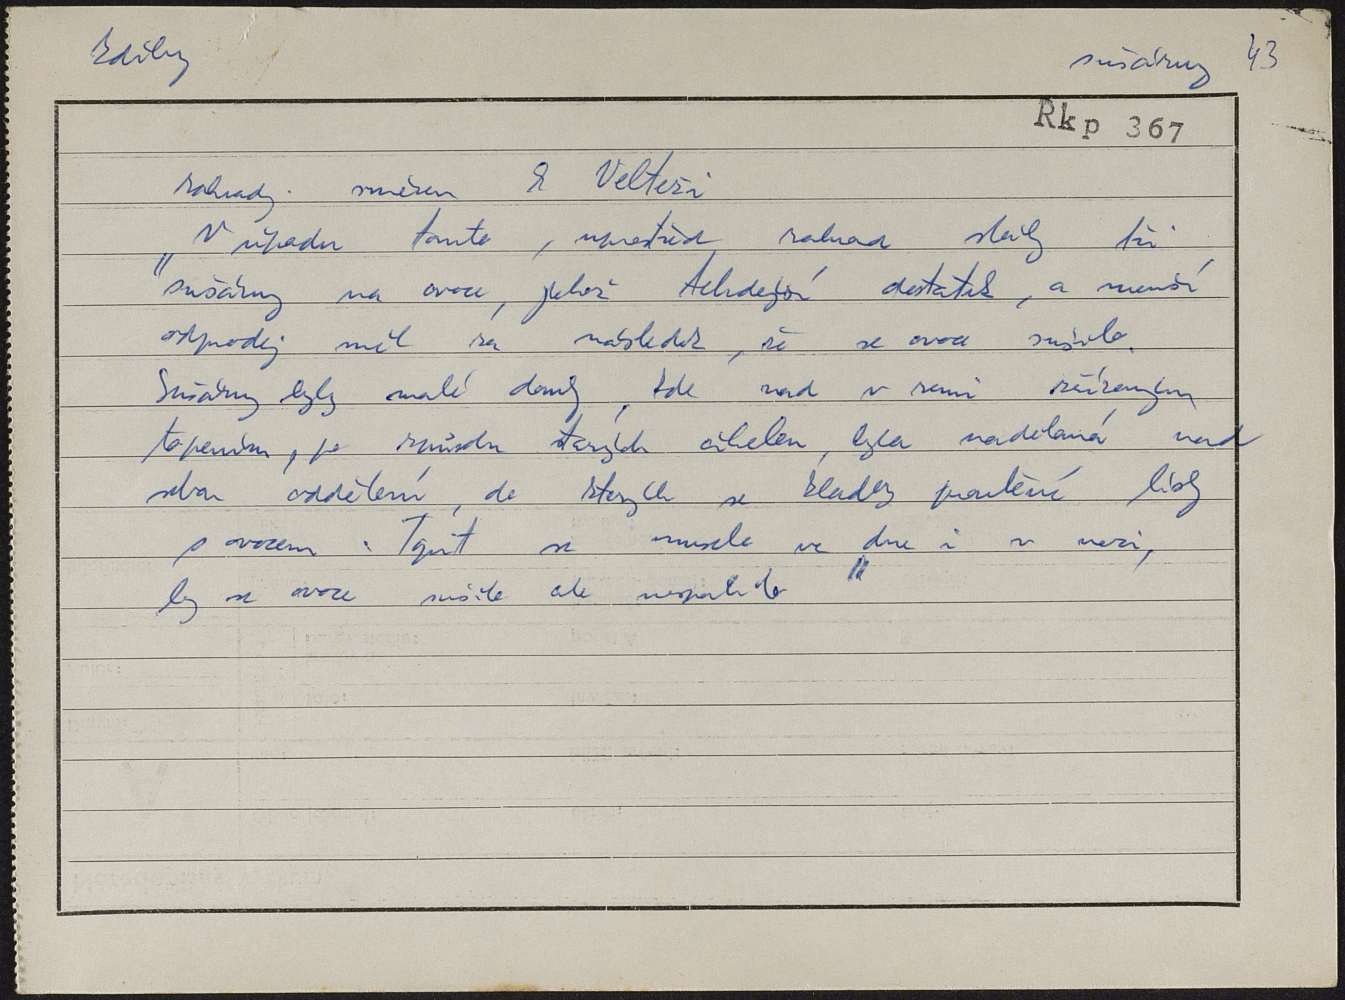 Zdiby sušárny 43
Rkp 367
zahrady směrem k Veltěži
„V úpadu tomto, uprostřed zahrad stály tři
sušárny na ovoce, jehož tehdejší dostatek, a menší
odprodej měl za následek, že se ovoce sušilo.
Sušárny byly malé domky, kde nad v zemi zřízeným
topením, po způsobu starých cihelen, byla nadělaná nad
sebou oddělení, do kterých se kladly proutěné lísky
s ovocem. Topit se muselo ve dne i v noci,
by se ovoce sušilo ale nespálilo"